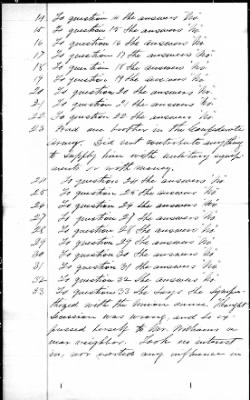 14 To question 14 she answers "No"
15 To question 15 she answers "No"
16 To question 16 she answers "No"
17 To question 17 she answers "No"
18 To question 18 she answers "No"
19 To question 19 she answers "No"
20 To question 20 she answers "No"
21 To question 21 she answers "No"
22 To question 22 she answers "No"
23 Had one brother in the Confederate
army. Did not contribute anything
to supply him with military equip
ments or with money.
24 To question 24 she answers "No"
25 To question 25 she answers "No"
26 To question 26 she answers "No"
27 To question 27 she answers "No"
28 To question 28 she answers "No"
29 To question 29 she answers "No"
30 To question 30 she answers "No"
31 To question 31 she answers "No"
32 To question 32 she answers "No"
33 To question 33 she says she sympa-
thized with the Union cause. Thought
Secession was wrong, and so ex
pressed herself to Mr. Williams a
near neighbor. Took no interest
in, nor exerted any influence in